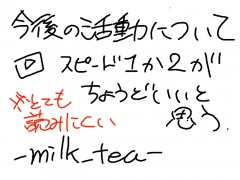 今後の活動について
▶ スピード1か2が
ちょうどいいと
思う.
※とても
読みにくい
-milk_tea-